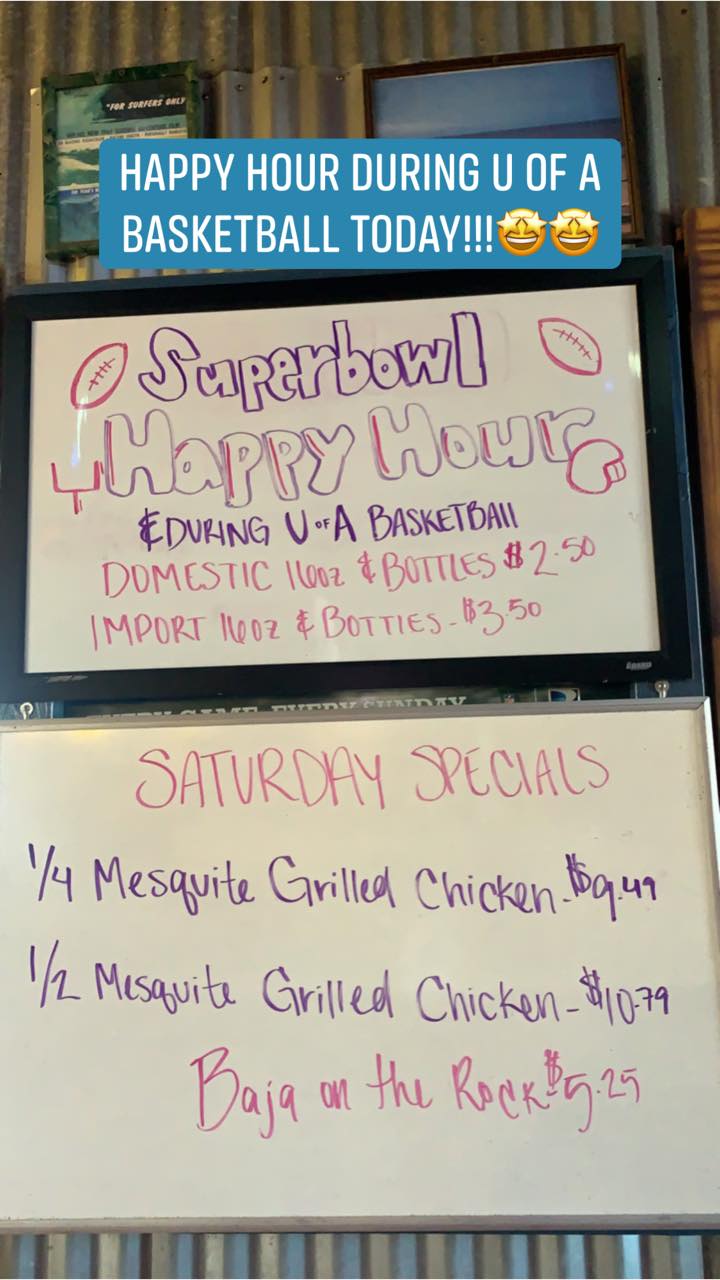 "FOR SURFERS ONLY
HAPPY HOUR DURING U OF A
BASKETBALL TODAY!!!🤩🤩
Superbowl
Happy Hour
& DURING U OF A BASKETBALL
DOMESTIC 16oz & BOTTLES $2.50
IMPORT 16oz & BOTTIES - $3.50
EVERY GAME. EVERY SUNDAY
SATURDAY SPECIALS
1/4 Mesquite Grilled Chicken - $9.49
1/2 Mesquite Grilled Chicken - $10.79
Baja on the Rock - $5.25